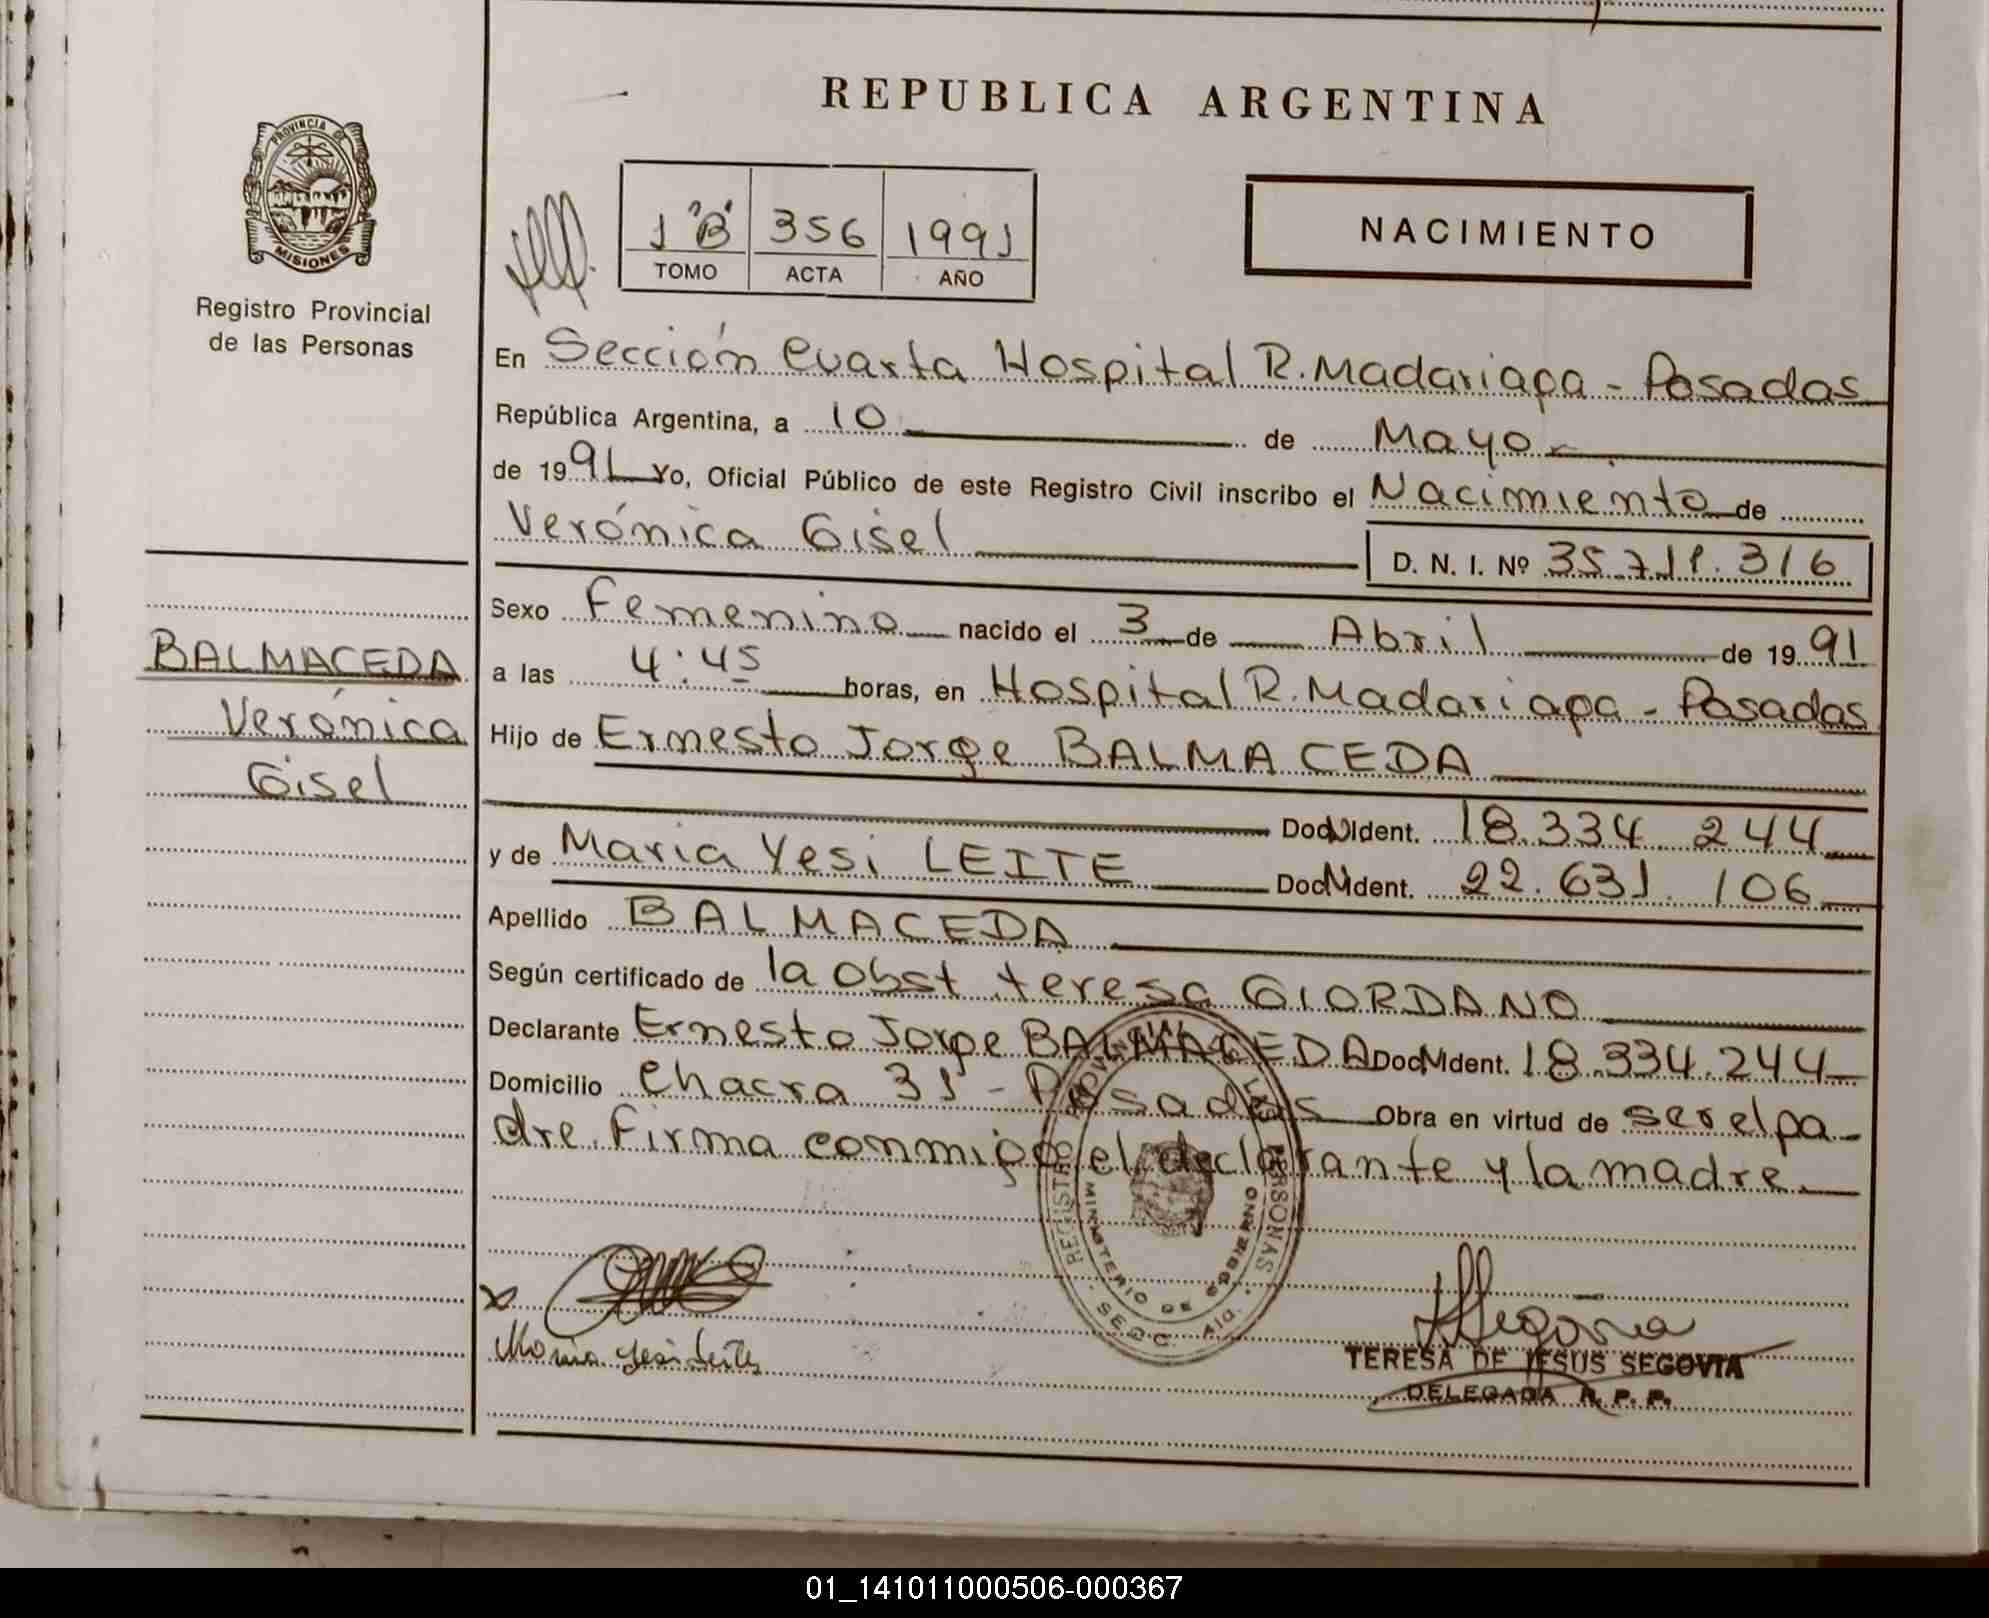 REPUBLICA ARGENTINA
PROVINCIA DE
MISIONES
Registro Provincial
de las Personas
1 "B" 356 1991
TOMO ACTA AÑO
NACIMIENTO
En Sección Cuarta Hospital R. Madariaga - Posadas
República Argentina, a 10 de Mayo
de 1991 Yo, Oficial Público de este Registro Civil inscribo el Nacimiento de
Verónica Gisel
D. N. I. Nº 35.711.316
Sexo Femenino nacido el 3 de Abril de 1991
a las 4:45 horas, en Hospital R. Madariaga - Posadas
Hijo de Ernesto Jorge BALMACEDA
Doc. Ident. 18.334.244
y de Maria Yesi LEITE Doc. Ident. 22.631.106
Apellido BALMACEDA
Según certificado de la Obst teresa GIORDANO
Declarante Ernesto Jorge BALMACEDA Doc. Ident. 18.334.244
Domicilio Chacra 31 - Posadas Obra en virtud de ser el pa-
dre. Firma conmigo el declarante y la madre.
BALMACEDA
Verónica
Gisel
REGISTRO PROVINCIAL PERSONAS
MINISTERIO DE GOBIERNO
SECC. 4ta.
x
Maria Yesi Leite
Segovia
TERESA DE JESUS SEGOVIA
DELEGADA R. P. P.
01_141011000506-000367